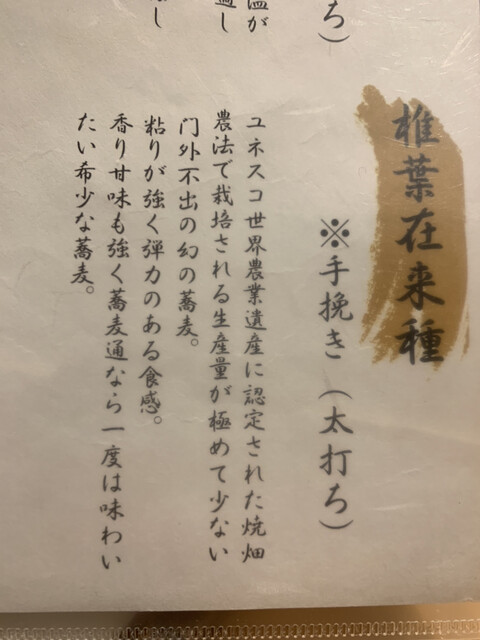 椎葉在来種
※手挽き(太打ち)
ユネスコ世界農業遺産に認定された焼畑
農法で栽培される生産量が極めて少ない
門外不出の幻の蕎麦。
粘りが強く弾力のある食感。
香り甘味も強く蕎麦通なら一度は味わい
たい希少な蕎麦。
ち)
温が